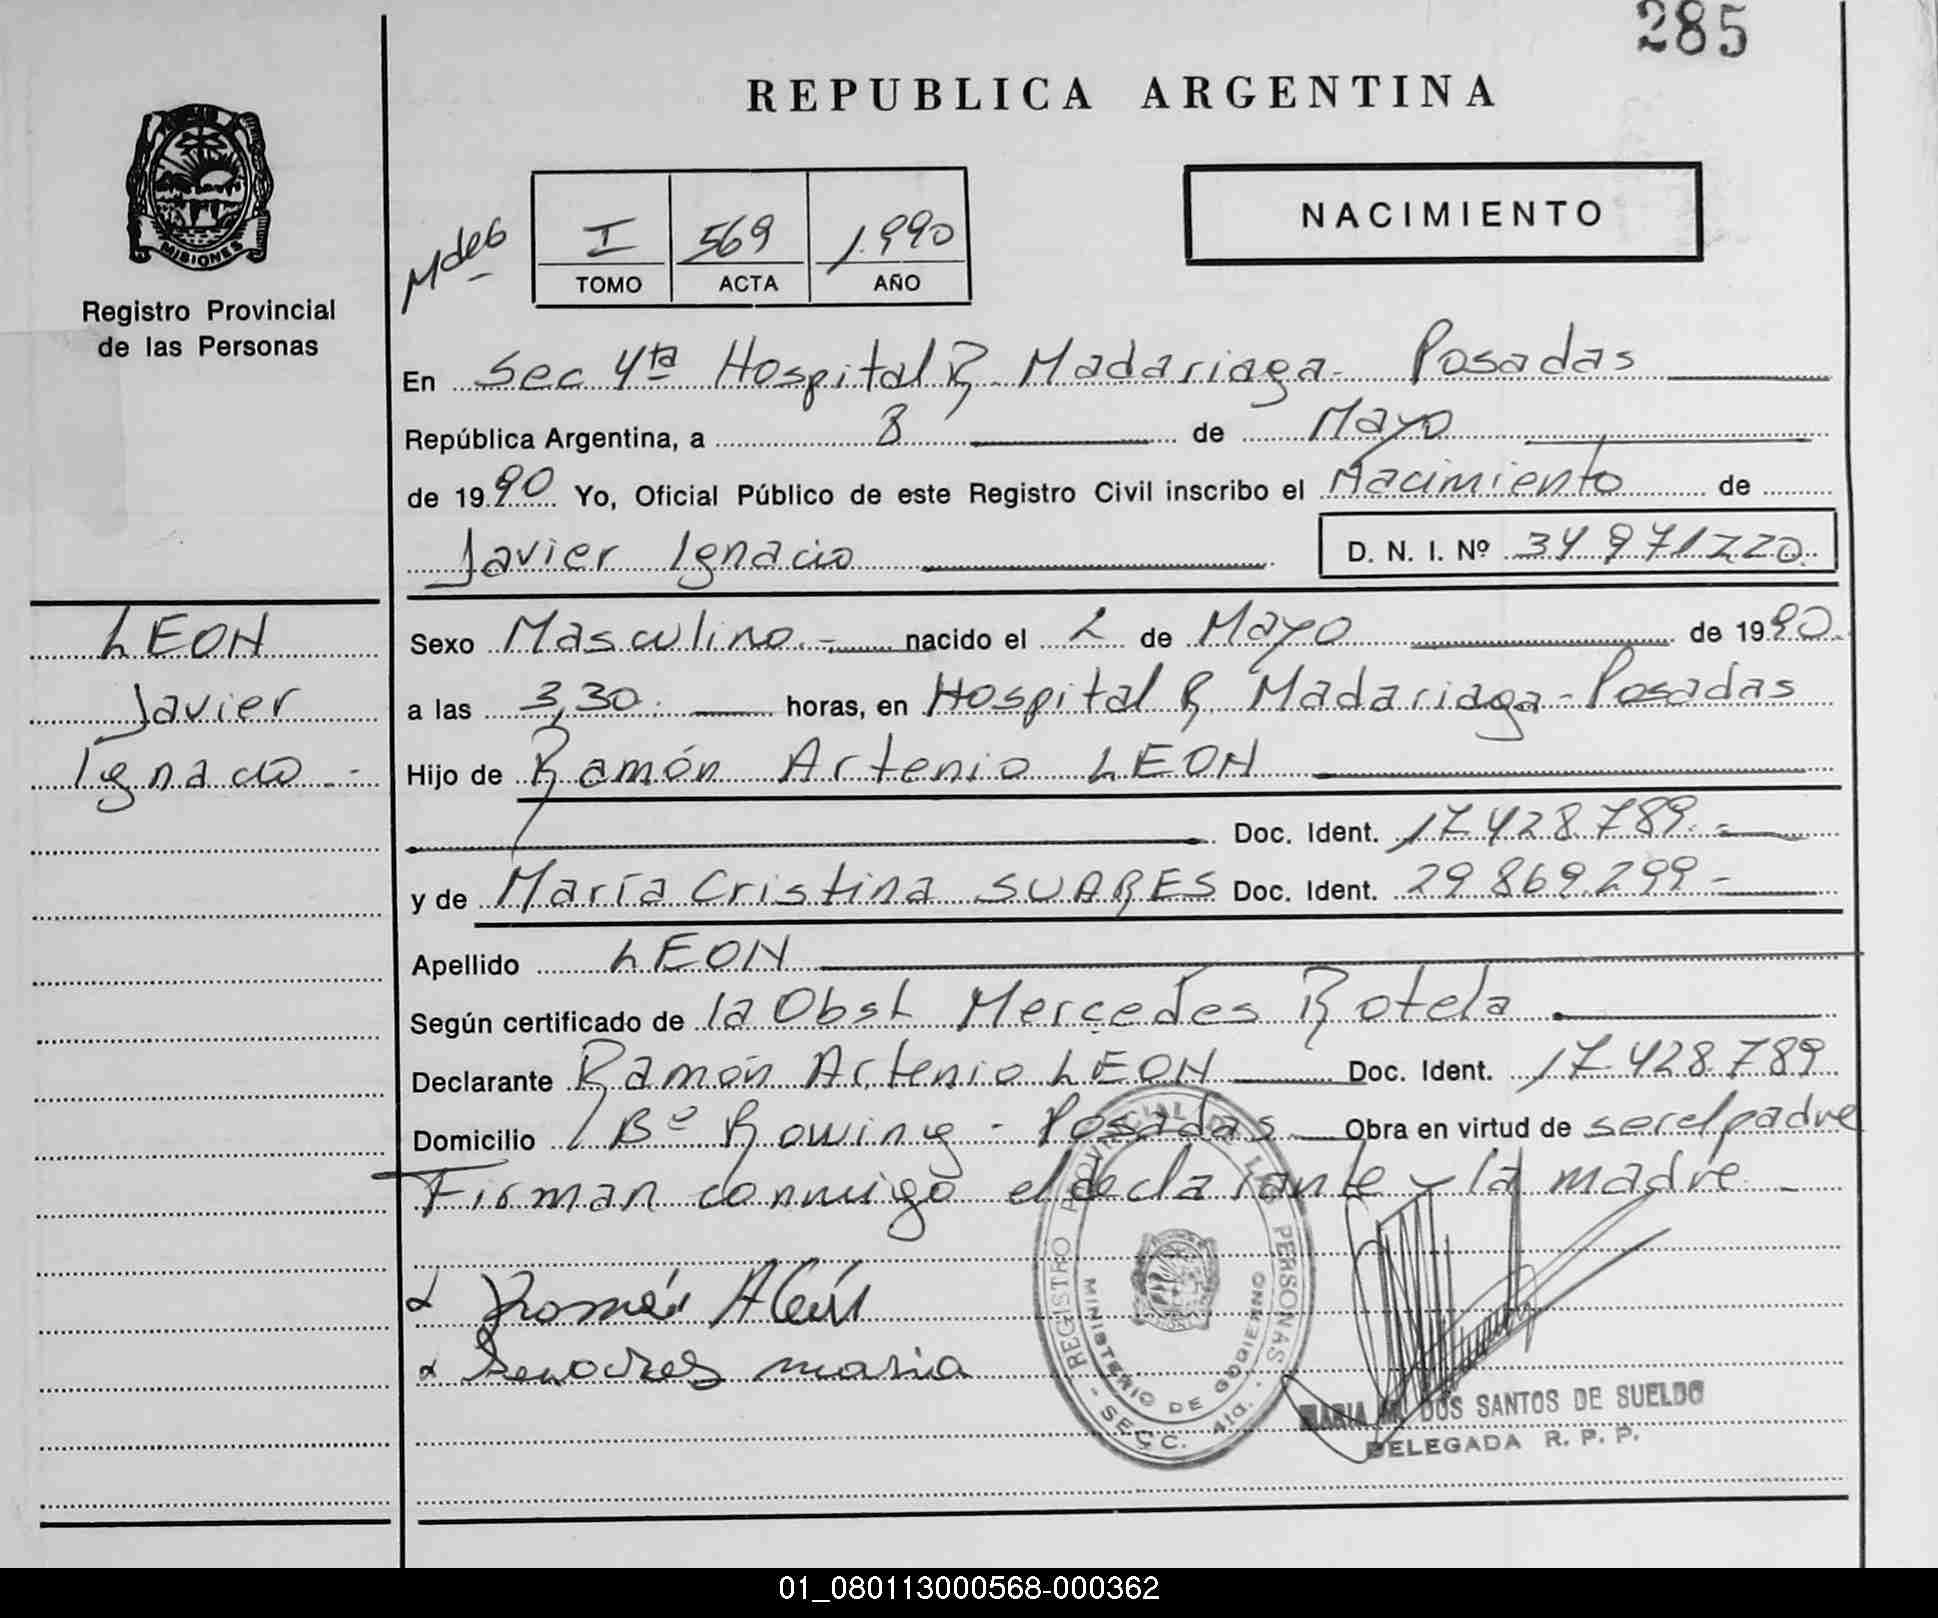 285
REPUBLICA ARGENTINA
MISIONES
Registro Provincial
de las Personas
Mdeb
I 569 1.990
TOMO ACTA AÑO
NACIMIENTO
En Sec 4ta Hospital R. Madariaga - Posadas
República Argentina, a 8 de Mayo
de 1990 Yo, Oficial Público de este Registro Civil inscribo el Nacimiento de
Javier Ignacio D. N. I. Nº 34971220.
LEON
Javier
Ignacio -
Sexo Masculino.- nacido el 2 de Mayo de 1990.
a las 3,30. horas, en Hospital R. Madariaga - Posadas
Hijo de Ramón Artenio LEON
Doc. Ident. 17.428.789.-
y de María Cristina SUARES Doc. Ident. 29.869.299-
Apellido LEON
Según certificado de la Obst Mercedes Rotela
Declarante Ramón Artenio LEON Doc. Ident. 17.428.789
Domicilio Bº Rowing - Posadas Obra en virtud de ser el padre
Firman conmigo el declarante y la madre -
Ramón A León
maria
REGISTRO PROVINCIAL DE LAS PERSONAS
MINISTERIO DE GOBIERNO
- SECC. 4ta. -
MARIA M. DOS SANTOS DE SUELDO
DELEGADA R. P. P.
01_080113000568-000362